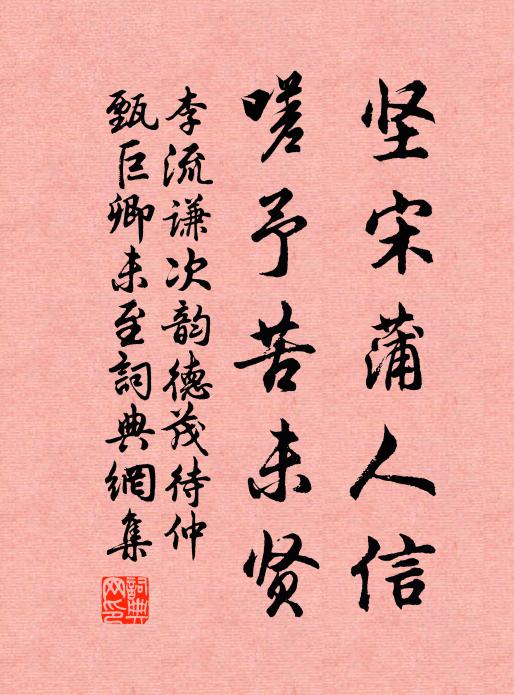 坚宋蒲人信
嗟予苦未贤
李流谦次韵德茂待仲
甄巨卿未至詞典網集
詞典網印